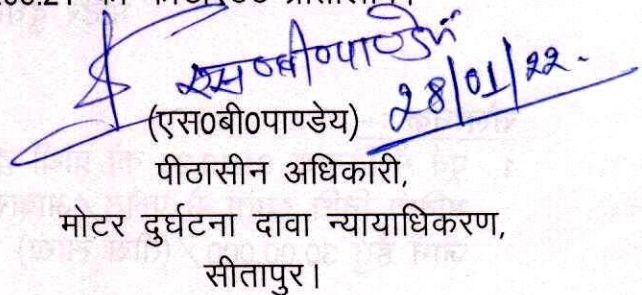 एस०बी०पाण्डेय
28/01/22.
(एस0बी0पाण्डेय)
पीठासीन अधिकारी,
मोटर दुर्घटना दावा न्यायाधिकरण,
सीतापुर।